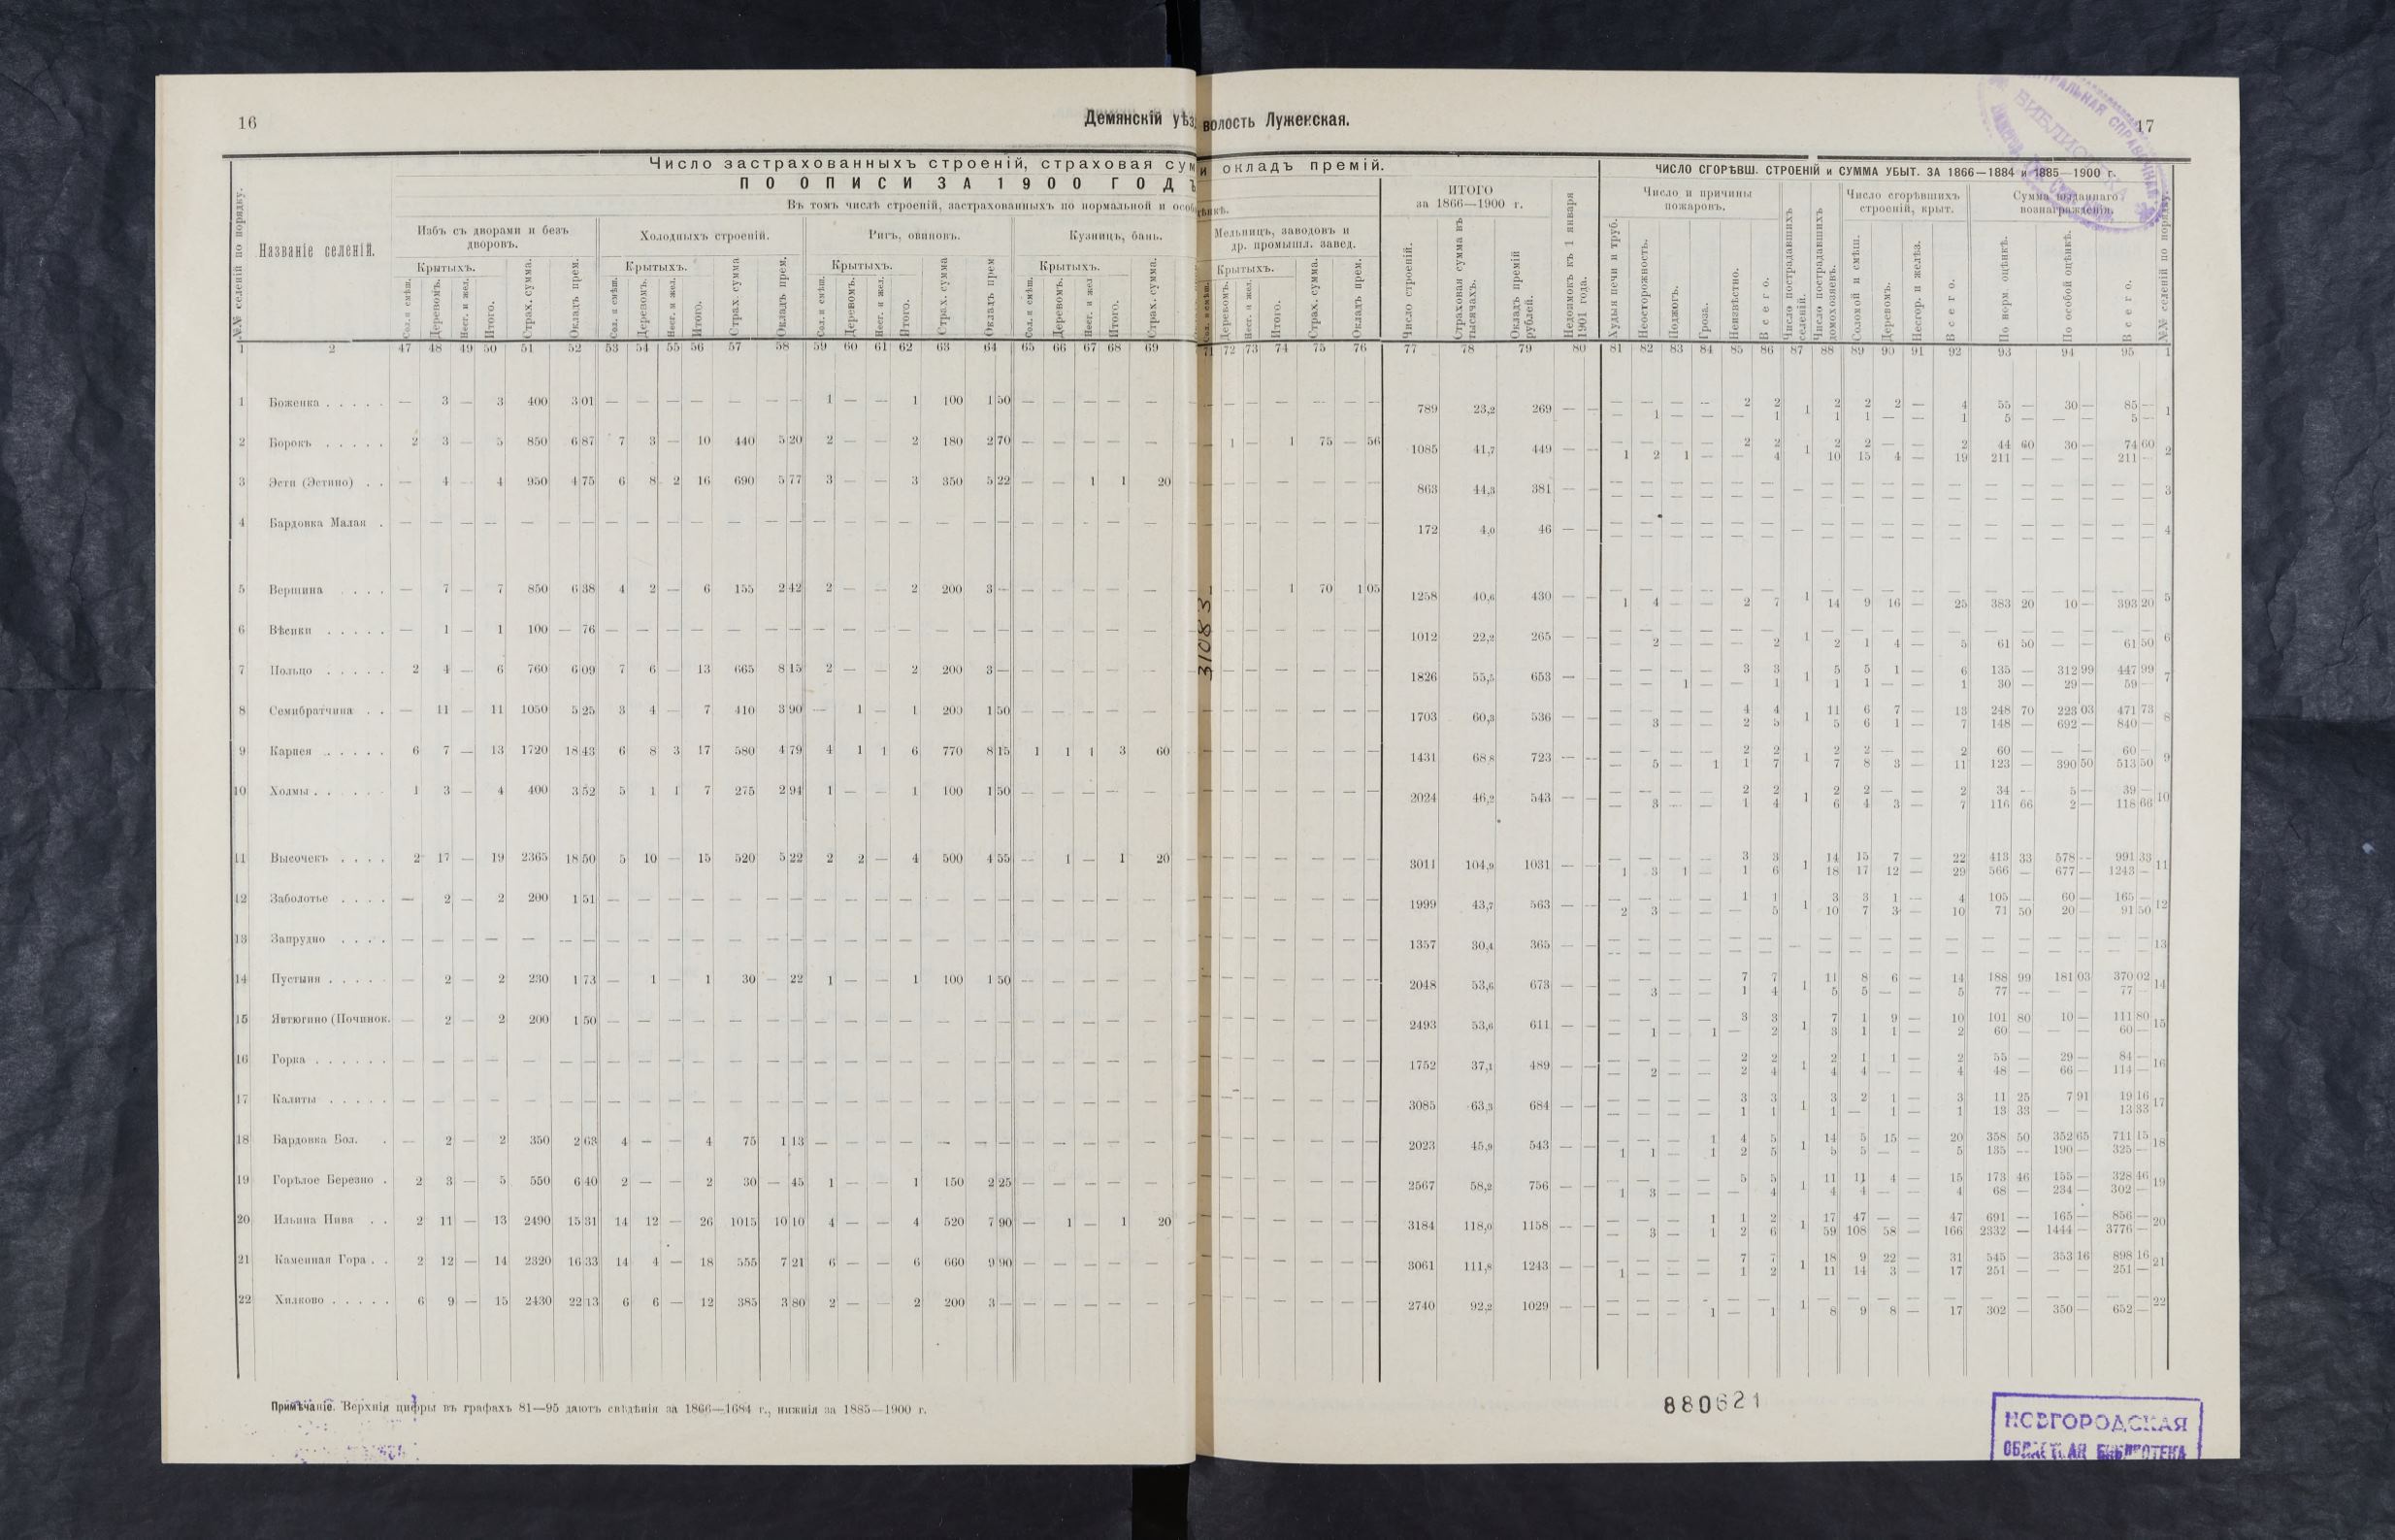 16
Демянскій уѣз
волость Лужекская.
17
Число застрахованныхъ строеній, страховая сум
и окладъ премій.
ПО ОПИСИ ЗА 1900 ГОДЪ
Въ томъ числѣ строеній, застрахованныхъ по нормальной и особ
ЧИСЛО СГОРѢВШ. СТРОЕНІЙ и СУММА УБЫТ. ЗА 1866—1884 и 1885—1900 г.
№№ селеній по порядку.
Названіе селеній.
Избъ съ дворами и безъ дворовъ.
Холодныхъ строеній.
Ригъ, овиновъ.
Кузницъ, бань.
Мельницъ, заводовъ и др. промышл. завед.
ИТОГО за 1866—1900 г.
Недоимокъ къ 1 января 1901 года.
Число и причины пожаровъ.
Число пострадавшихъ селеній.
Число пострадавшихъ домохозяевъ.
Число сгорѣвшихъ строеній, крыт.
Сумма выданнаго вознагражденія.
№№ селеній по порядку.
Крытыхъ. Крытыхъ. Крытыхъ. Крытыхъ. Крытыхъ.
Сол. и смѣш. Деревомъ. Несг. и жел. Итого. Страх. сумма. Окладъ прем.
Сол. и смѣш. Деревомъ. Несг. и жел. Итого. Страх. сумма Окладъ прем.
Сол. и смѣш. Деревомъ. Несг. и жел. Итого. Страх. сумма Окладъ прем
Сол. и смѣш. Деревомъ. Несг. и жел Итого. Страх. сумма.
Деревомъ. Несг. и жел. Итого. Страх. сумма. Окладъ прем.
Число строеній. Страховая сумма въ тысячахъ. Окладъ премій рублей.
Худыя печи и труб. Неосторожность. Поджогъ. Гроза. Неизвѣстно. Всего.
Соломой и смѣш. Деревомъ. Несгор. и желѣз. Всего.
По норм. оцѣнкѣ. По особой оцѣнкѣ. Всего.
1 2 47 48 49 50 51 52 53 54 55 56 57 58 59 60 61 62 63 64 65 66 67 68 69 71 72 73 74 75 76 77 78 79 80 81 82 83 84 85 86 87 88 89 90 91 92 93 94 95 1
1 Боженка . . . . . — 3 — 3 400 3 01 — — — — — — — 1 — — 1 100 1 50 — — — — — — — — — — — — 789 23,2 269 — — — — — — 2 2 1 2 2 2 — 4 55 — 30 — 85 — 1
— 1 — — — 1 1 1 — — 1 5 — — — 5 —
2 Борокъ . . . . . 2 3 — 5 850 6 87 7 3 — 10 440 5 20 2 — — 2 180 2 70 — — — — — — 1 — 1 75 — 56 1085 41,7 449 — — — — — — 2 2 1 2 2 — — 2 44 60 30 — 74 60 2
1 2 1 — — 4 10 15 4 — 19 211 — — — 211 —
3 Эсти (Эстино) . . — 4 — 4 950 4 75 6 8 2 16 690 5 77 3 — — 3 350 5 22 — — 1 1 20 — — — — — — — 863 44,3 381 — — — — — — — — — — — — — — — — — — — — 3
— — — — — — — — — — — — — — — — —
4 Бардовка Малая . — — — — — — — — — — — — — — — — — — — — — — — — — — — — — — — — — 172 4,0 46 — — — — — — — — — — — — — — — — — — — — 4
— — — — — — — — — — — — — — — — —
5 Вершина . . . . — 7 — 7 850 6 38 4 2 — 6 155 2 42 2 — — 2 200 3 — — — — — — — — — 1 70 1 05 1258 40,6 430 — — — — — — — — 1 — — — — — — — — — — — 5
1 4 — — 2 7 14 9 16 — 25 383 20 10 — 393 20
6 Вѣсики . . . . . — 1 — 1 100 — 76 — — — — — — — — — — — — — — — — — — — — — — — — — — 1012 22,2 265 — — — — — — — — 1 — — — — — — — — — — — 6
— 2 — — — 2 2 1 4 — 5 61 50 — — 61 50
7 Польцо . . . . . 2 4 — 6 760 6 09 7 6 — 13 665 8 15 2 — — 2 200 3 — — — — — — — — — — — — — 1826 55,5 653 — — — — — — 3 3 1 5 5 1 — 6 135 — 312 99 447 99 7
— — 1 — — 1 1 1 — — 1 30 — 29 — 59 —
8 Семибратчина . . — 11 — 11 1050 5 25 3 4 — 7 410 3 90 — 1 — 1 200 1 50 — — — — — — — — — — — — 1703 60,3 536 — — — — — — 4 4 1 11 6 7 — 13 248 70 223 03 471 73 8
— 3 — — 2 5 5 6 1 — 7 148 — 692 — 840 —
9 Карпея . . . . . 6 7 — 13 1720 18 43 6 8 3 17 580 4 79 4 1 1 6 770 8 15 1 1 1 3 60 — — — — — — — 1431 68,8 723 — — — — — — 2 2 1 2 2 — — 2 60 — — — 60 — 9
— 5 — 1 1 7 7 8 3 — 11 123 — 390 50 513 50
10 Холмы . . . . . . 1 3 — 4 400 3 52 5 1 1 7 275 2 94 1 — — 1 100 1 50 — — — — — — — — — — — — 2024 46,2 543 — — — — — — 2 2 1 2 2 — — 2 34 — 5 — 39 — 10
— 3 — — 1 4 6 4 3 — 7 116 66 2 — 118 66
11 Высочекъ . . . . 2 17 — 19 2365 18 50 5 10 — 15 520 5 22 2 2 — 4 500 4 55 — 1 — 1 20 — — — — — — — 3011 104,9 1031 — — — — — — 3 3 1 14 15 7 — 22 413 33 578 — 991 33 11
1 3 1 — 1 6 18 17 12 — 29 566 — 677 — 1243 —
12 Заболотье . . . . — 2 — 2 200 1 51 — — — — — — — — — — — — — — — — — — — — — — — — — — 1999 43,7 563 — — — — — — 1 1 1 3 3 1 — 4 105 — 60 — 165 — 12
2 3 — — — 5 10 7 3 — 10 71 50 20 — 91 50
13 Запрудно . . . . — — — — — — — — — — — — — — — — — — — — — — — — — — — — — — — — — 1357 30,4 365 — — — — — — — — — — — — — — — — — — — — 13
— — — — — — — — — — — — — — — — —
14 Пустыня . . . . . — 2 — 2 230 1 73 — 1 — 1 30 — 22 1 — — 1 100 1 50 — — — — — — — — — — — — 2048 53,6 673 — — — — — — 7 7 1 11 8 6 — 14 188 99 181 03 370 02 14
— 3 — — 1 4 5 5 — — 5 77 — — — 77 —
15 Явтюгино (Починок. — 2 — 2 200 1 50 — — — — — — — — — — — — — — — — — — — — — — — — — — 2493 53,6 611 — — — — — — 3 3 1 7 1 9 — 10 101 80 10 — 111 80 15
— 1 — 1 — 2 3 1 1 — 2 60 — — — 60 —
16 Горка . . . . . . — — — — — — — — — — — — — — — — — — — — — — — — — — — — — — — — — 1752 37,1 489 — — — — — — 2 2 1 2 1 1 — 2 55 — 29 — 84 — 16
— 2 — — 2 4 4 4 — — 4 48 — 66 — 114 —
17 Калиты . . . . . — — — — — — — — — — — — — — — — — — — — — — — — — — — — — — — — — 3085 63,3 684 — — — — — — 3 3 1 3 2 1 — 3 11 25 7 91 19 16 17
— — — — 1 1 1 — 1 — 1 13 33 — — 13 33
18 Бардовка Бол. . — 2 — 2 350 2 63 4 — — 4 75 1 13 — — — — — — — — — — — — — — — — — — — 2023 45,9 543 — — — — — 1 4 5 1 14 5 15 — 20 358 50 352 65 711 15 18
1 1 — 1 2 5 5 5 — — 5 135 — 190 — 325 —
19 Горѣлое Березно . 2 3 — 5 550 6 40 2 — — 2 30 — 45 1 — — 1 150 2 25 — — — — — — — — — — — — 2567 58,2 756 — — — — — — 5 5 1 11 11 4 — 15 173 46 155 — 328 46 19
1 3 — — — 4 4 4 — — 4 68 — 234 — 302 —
20 Ильина Нива . . 2 11 — 13 2490 15 31 14 12 — 26 1015 10 10 4 — — 4 520 7 90 — 1 — 1 20 — — — — — — — 3184 118,0 1158 — — — — — 1 1 2 1 17 47 — — 47 691 — 165 — 856 — 20
— 3 — 1 2 6 59 108 58 — 166 2332 — 1444 — 3776 —
21 Каменная Гора . . 2 12 — 14 2320 16 33 14 4 — 18 555 7 21 6 — — 6 660 9 90 — — — — — — — — — — — — 3061 111,8 1243 — — — — — — 7 7 1 18 9 22 — 31 545 — 353 16 898 16 21
1 — — — 1 2 11 14 3 — 17 251 — — — 251 —
22 Хилково . . . . . 6 9 — 15 2430 22 13 6 6 — 12 385 3 80 2 — — 2 200 3 — — — — — — — — — — — — — 2740 92,2 1029 — — — — — — — — 1 — — — — — — — — — — — 22
— — — 1 — 1 8 9 8 — 17 302 — 350 — 652 —
31083
Примѣчаніе. Верхнія цифры въ графахъ 81—95 даютъ свѣдѣнія за 1866—1684 г., нижнія за 1885—1900 г.
880621
НОВГОРОДСКАЯ
ОБЛАСТНАЯ БИБЛИОТЕКА